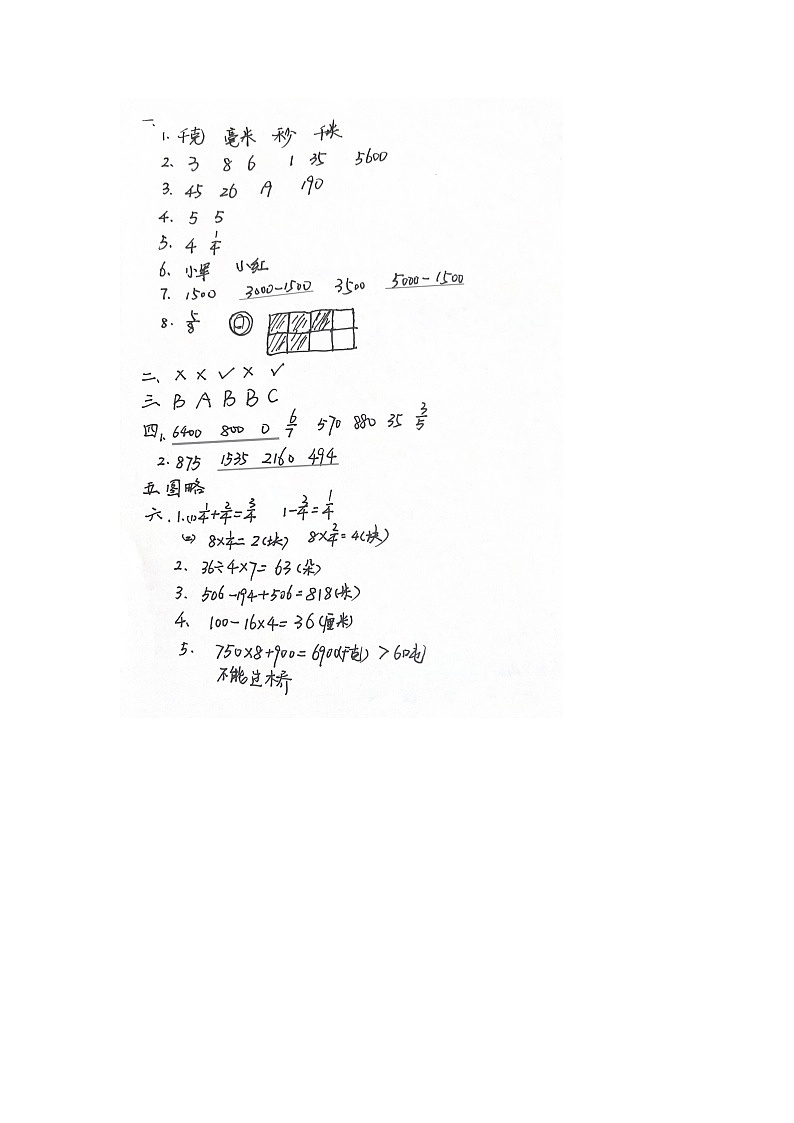 一、
1. 千克 毫米 秒 千米
2. 3 8 6 1 35 5600
3. 45 26 A 190
4. 5 5
5. 4 1/4
6、小军 小红
7. 1500 3000-1500 3500 5000-1500
8. 5/8 ②
二、× × ✓ × ✓
三、B A B B C
四、1. 6400 800 0 6/7 570 880 35 3/5
2. 875 1535 2160 494
五、图略
六.1.(1) 1/4+2/4=3/4 1-3/4=1/4
(2) 8×1/4=2(块) 8×2/4=4(块)
2、36÷4×7=63(朵)
3. 506-194+506=818(块)
4、100-16×4=36(厘米)
5. 750×8+900=6900(千克) >6吨
不能过桥